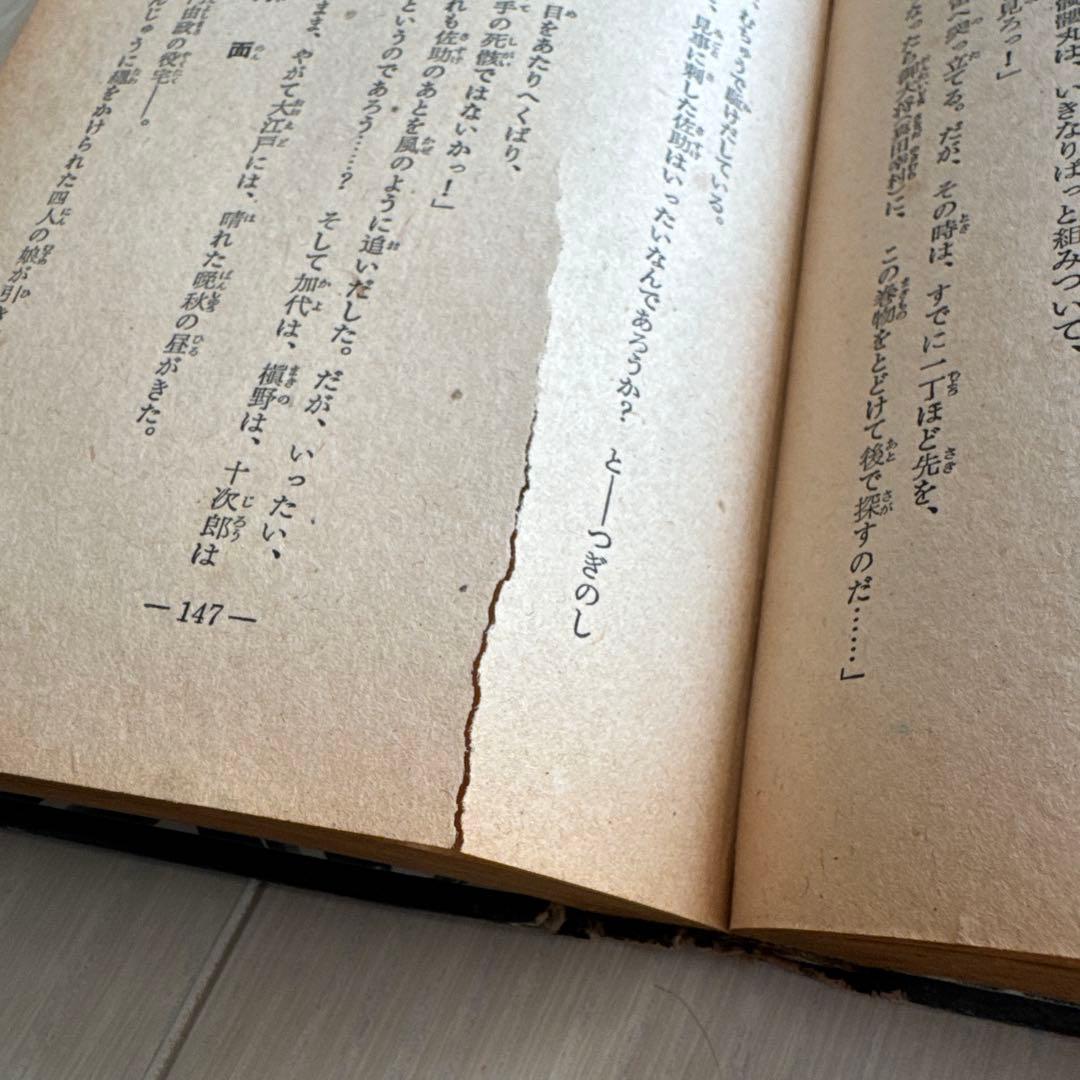 髑髏丸は、いきなりぱっと組みついて、
見ろっ！」
突っ立てる。だが、その時は、すでに一丁ほど先を、
ったら御大将（真田幸村）に この巻物をとどけて後で探すのだ……」
、むちゅうで駈けだしている。
、見事に刺した佐助はいったいなんであろうか？ と――つぎのし
目をあたりへくばり、
手の死骸ではないかっ！」
れも佐助のあとを風のように追いだした。だが、いったい、
というのであろう……？ そして加代は、槇野は、十次郎は
まま、やがて大江戸には、晴れた晩秋の昼がきた。
面
宙政の役宅――。
んじゅうに縄をかけられた四人の娘が引き
—147—